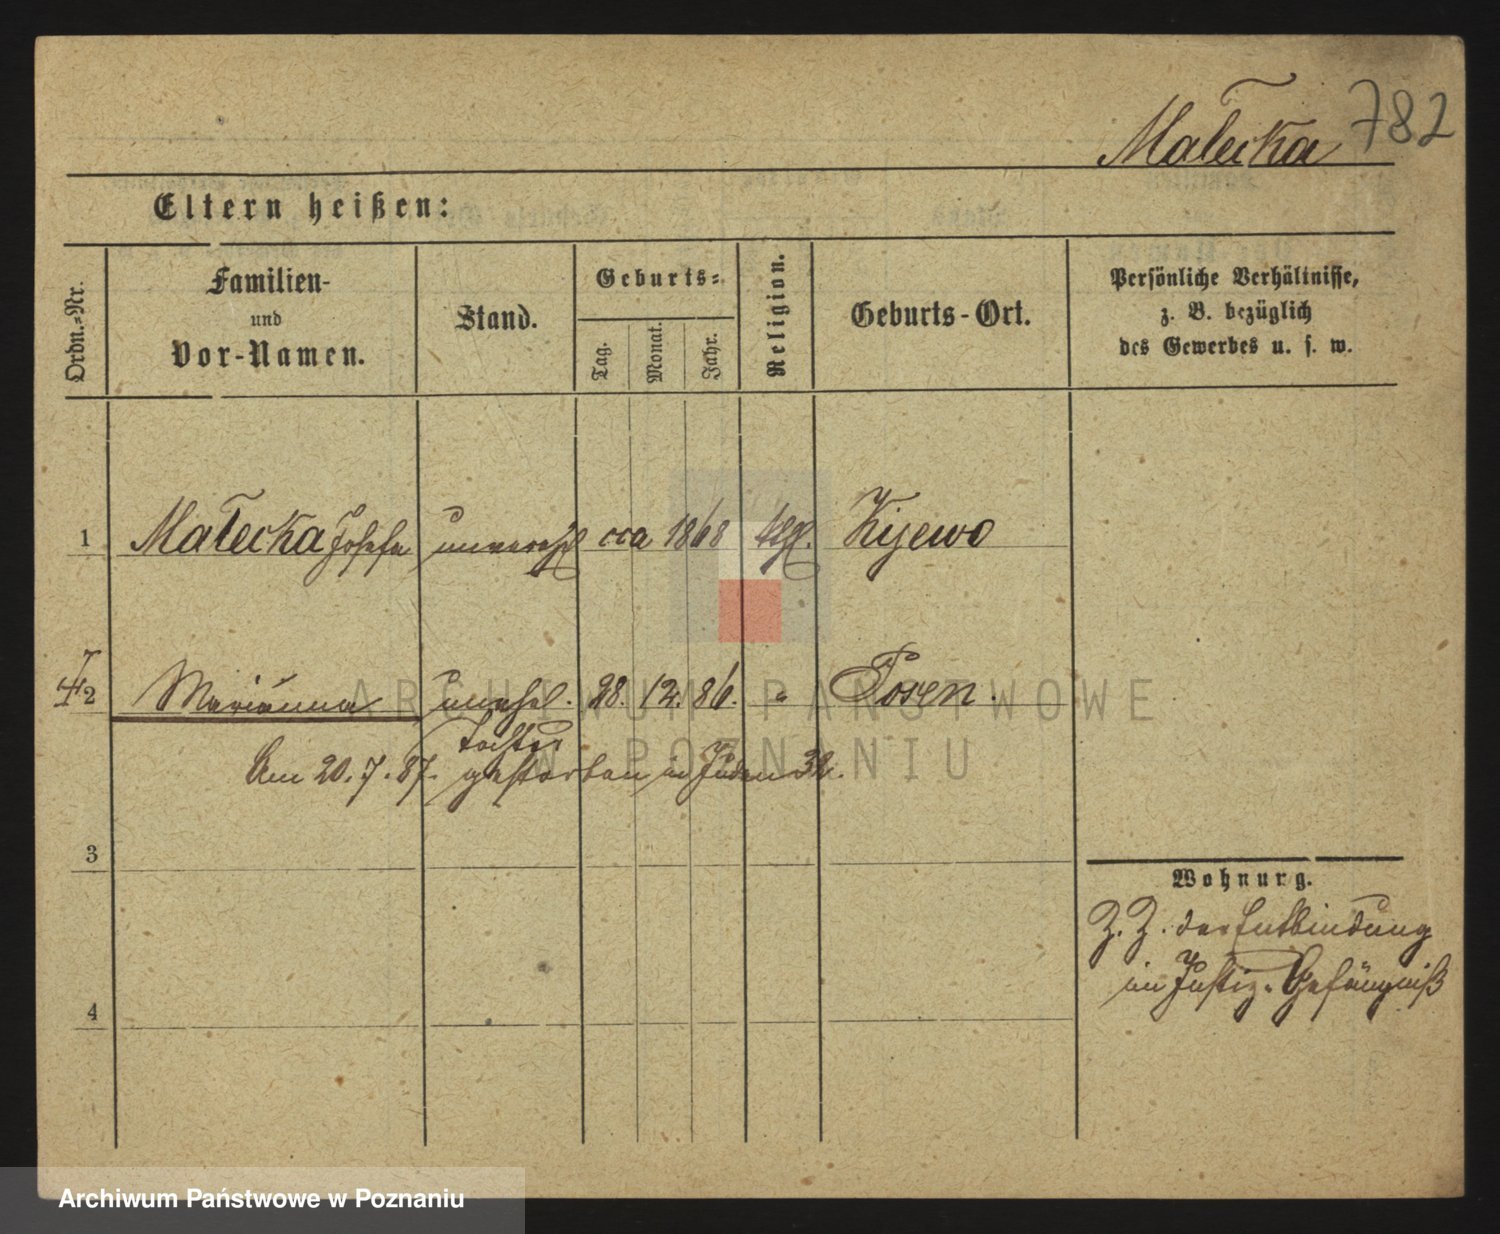 Malecka 782
Eltern heißen:
Ordn.-Nr.
Familien-
und
Vor-Namen.
Stand.
Geburts-
Tag.
Monat.
Jahr.
Religion.
Geburts-Ort.
Persönliche Verhältnisse,
z. B. bezüglich
des Gewerbes u. s. w.
1 Malecka Josefa unvereh. cca 1868 kgl. Kijewo
2 Marianna unehel. 28. 12. 86. " Posen.
Tochter
Am 20. 7. 87. gestorben in Juden 32.
3
4
Wohnung.
Z. Z. der Entbindung
im Justiz-Gefängniß
ARCHIWUM PAŃSTWOWE
W POZNANIU
Archiwum Państwowe w Poznaniu